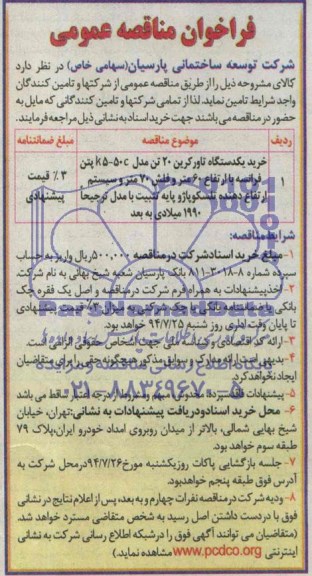 فراخوان مناقصه عمومی
شرکت توسعه ساختمانی پارسیان(سهامی خاص) در نظر دارد
کالای مشروحه ذیل را از طریق مناقصه عمومی از شرکتها و تامین کنندگان
واجد شرایط تامین نماید. لذا از تمامی شرکتها و تامین کنندگانی که مایل به
حضور در مناقصه می باشند جهت خرید اسناد به نشانی ذیل مراجعه فرمایند.
ردیف موضوع مناقصه مبلغ ضمانتنامه
خرید یکدستگاه تاورکرین ۲۰ تن مدل k5-50c پتن
۱ فرانسه با ارتفاع ۶۰ متر و فلش ۷۰ متر و سیستم ۳٪ قیمت
ارتفاع دهنده تلسکوپاژ و پایه تثبیت با مدل ترجیحا پیشنهادی
۱۹۹۰ میلادی به بعد
شرایط مناقصه:
۱- مبلغ خرید اسناد شرکت در مناقصه ۵۰۰,۰۰۰ ریال واریز به حساب
سپرده شماره ۸-۳۰۱۸-۸۱۱ بانک پارسیان شعبه شیخ بهائی به نام شرکت.
۲- اخذ پیشنهادات به همراه فرم شرکت در مناقصه و اصل یک فقره چک
بانکی یا ضمانتنامه بانکی یا چک شرکتی به میزان ۳٪ قیمت پیشنهادی
تا پایان وقت اداری روز شنبه ۹۴/۷/۲۵ خواهد بود.
۳- ارائه کد اقتصادی و شناسه ملی جهت اشخاص حقوقی الزامی است.
۴- بدیهی است ارائه مدارک و سوابق مذکور هیچگونه حقی را برای متقاضیان
ایجاد نخواهد کرد.
۵- پیشنهادات فاقد سپرده، مخدوش، مبهم و مشروط از درجه اعتبار ساقط می باشد
۶- محل خرید اسناد و دریافت پیشنهادات به نشانی: تهران، خیابان
شیخ بهایی شمالی، بالاتر از میدان روبروی امداد خودرو ایران، پلاک ۷۹
طبقه سوم خواهد بود.
۷- جلسه بازگشایی پاکات روز یکشنبه مورخ ۹۴/۷/۲۶ در محل شرکت به
آدرس فوق طبقه پنجم خواهد بود.
۸- ودیه شرکت در مناقصه نفرات چهارم و به بعد، پس از اعلام نتایج در نشانی
فوق با در دست داشتن اصل رسید به شخص متقاضی مسترد خواهد شد.
(متقاضیان می توانند آگهی فوق را در شبکه اطلاع رسانی شرکت به نشانی
اینترنتی www.pcdco.org مشاهده نمایند.)
ParsNamadData
پایگاه اطلاع رسانی مناقصه و مزایده
۰۲۱-۸۸۳۴۹۶۷۰-۵